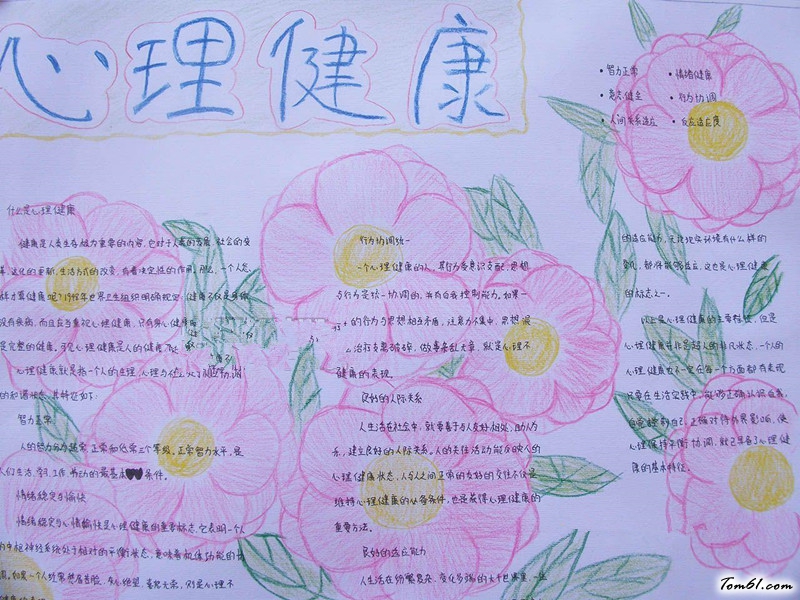 心理健康
• 智力正常 • 情绪健康
• 意志健全 • 行为协调
• 人间关系适应 • 反应适应度
什么是心理健康
健康是人类生存极为重要的内容,它对于人类的发展,社会的变
革,文化的更新,生活方式的改变,有着决定性的作用。那么,一个人怎
样才算健康呢?1948年世界卫生组织明确规定:健康不仅是身体
没有疾病,而且应当重视心理健康,只有身心健康
是完整的健康。可见心理健康是人的健康不
心理健康就是指一个人的生理、心理与社会处于相互协调
的和谐状态,其特征如下:
智力正常
人的智力分为超常、正常和低常三个等级。正常智力水平,是
人们生活、学习、工作、劳动的最基本条件。
情绪稳定与愉快
情绪稳定与心情愉快是心理健康的重要标志,它表明一个人
的中枢神经系统处于相对的平衡状态,意味着机体功能的协
调。如果一个人经常愁眉苦脸、灰心绝望、喜怒无常,则是心理不
行为协调统一
一个心理健康的人,其行为受意识支配,思想
与行为是统一协调的,并有自我控制能力。如果一
的行为与思想相互矛盾,注意力不集中,思想混
乱,语言支离破碎,做事杂乱无章,就是心理不
健康的表现。
良好的人际关系
人生活在社会中,就要善于与人友好相处,助人为
乐,建立良好的人际关系。人的交往活动能反映人的
心理健康状态,人与人之间正常的友好的交往不仅是
维持心理健康的必备条件,也是获得心理健康的
重要方法。
良好的适应能力
人生活在纷繁复杂、变化多端的大千世界里,一生
的适应能力,无论现实环境有什么样的
变化,都将能够适应,这也是心理健康
的标志之一。
以上是心理健康的主要特征,但是
心理健康并非是超人的非凡状态,一个人的
心理健康也不一定在每一个方面都有表现
只要在生活实践中,能够正确认识自我,
自觉控制自己,正确对待外界影响,使
心理保持平衡协调,就已具备了心理健
康的基本特征。
Tom61.com